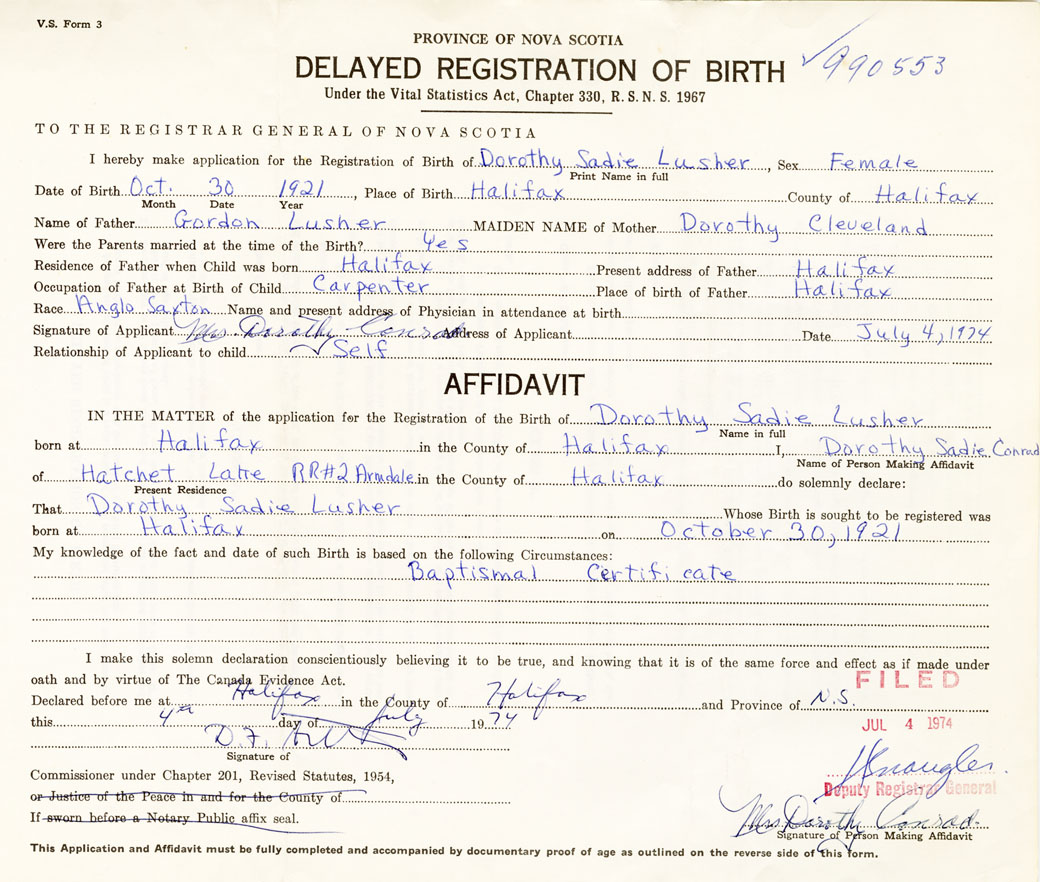 V.S. Form 3
PROVINCE OF NOVA SCOTIA
DELAYED REGISTRATION OF BIRTH
✓990553
Under the Vital Statistics Act, Chapter 330, R.S.N.S. 1967
TO THE REGISTRAR GENERAL OF NOVA SCOTIA
I hereby make application for the Registration of Birth of Dorothy Sadie Lusher, Sex Female
Print Name in full
Date of Birth Oct. 30 1921, Place of Birth Halifax County of Halifax
Month Date Year
Name of Father Gordon Lusher MAIDEN NAME of Mother Dorothy Cleveland
Were the Parents married at the time of the Birth? Yes
Residence of Father when Child was born Halifax Present address of Father Halifax
Occupation of Father at Birth of Child Carpenter Place of birth of Father Halifax
Race Anglo Saxton Name and present address of Physician in attendance at birth
Signature of Applicant Mrs Dorothy Conrad Address of Applicant Date July 4, 1974
Relationship of Applicant to child ✓ Self
AFFIDAVIT
IN THE MATTER of the application for the Registration of the Birth of Dorothy Sadie Lusher
Name in full
born at Halifax in the County of Halifax I, Dorothy Sadie Conrad
Name of Person Making Affidavit
of Hatchet Lake RR#2 Armdale in the County of Halifax do solemnly declare:
Present Residence
That Dorothy Sadie Lusher Whose Birth is sought to be registered was
born at Halifax on October 30, 1921
My knowledge of the fact and date of such Birth is based on the following Circumstances:
Baptismal Certificate
I make this solemn declaration conscientiously believing it to be true, and knowing that it is of the same force and effect as if made under
oath and by virtue of The Canada Evidence Act.
FILED
Declared before me at Halifax in the County of Halifax and Province of N.S.
this 4th day of July 1974
JUL 4 1974
D.F.
Signature of
Commissioner under Chapter 201, Revised Statutes, 1954,
Deputy Registrar General
or Justice of the Peace in and for the County of
If sworn before a Notary Public affix seal.
Mrs Dorothy Conrad
Signature of Person Making Affidavit
This Application and Affidavit must be fully completed and accompanied by documentary proof of age as outlined on the reverse side of this form.